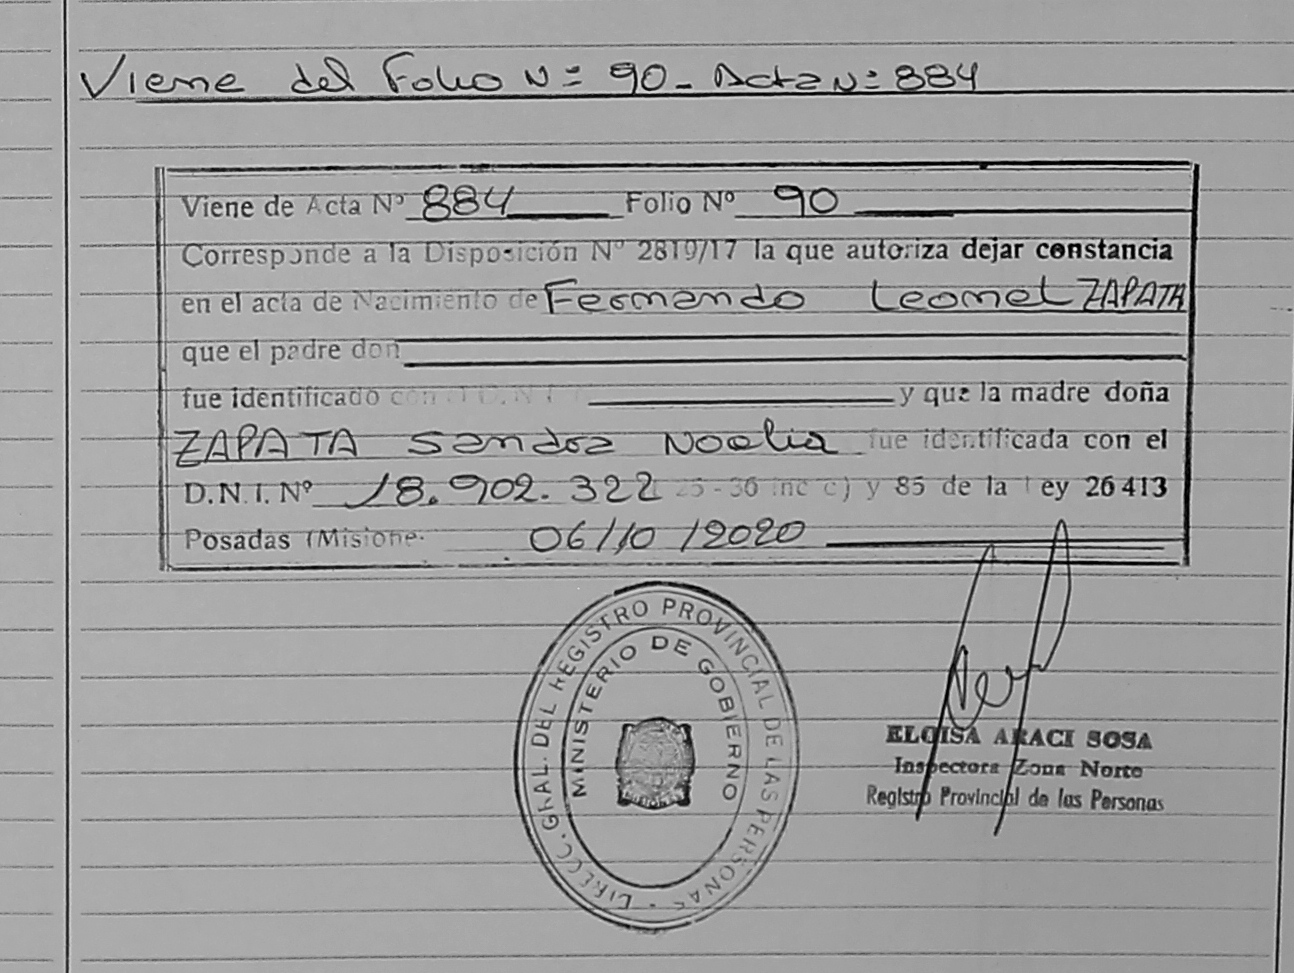 Viene del Folio Nº 90 - Acta Nº 884
Viene de Acta Nº 884 Folio Nº 90
Corresponde a la Disposición Nº 2819/17 la que autoriza dejar constancia
en el acta de Nacimiento de Fernando Leonel ZAPATA
que el padre don
fue identificado con el D.N.I. y que la madre doña
ZAPATA Sandra Noelia fue identificada con el
D.N.I. Nº 18.902.322 25-36 inc c) y 85 de la Ley 26413
Posadas (Misiones 06/10/2020
DIRECC. GRAL. DEL REGISTRO PROVINCIAL DE LAS PERSONAS
MINISTERIO DE GOBIERNO
ELOISA ARACI SOSA
Inspectora Zona Norte
Registro Provincial de las Personas